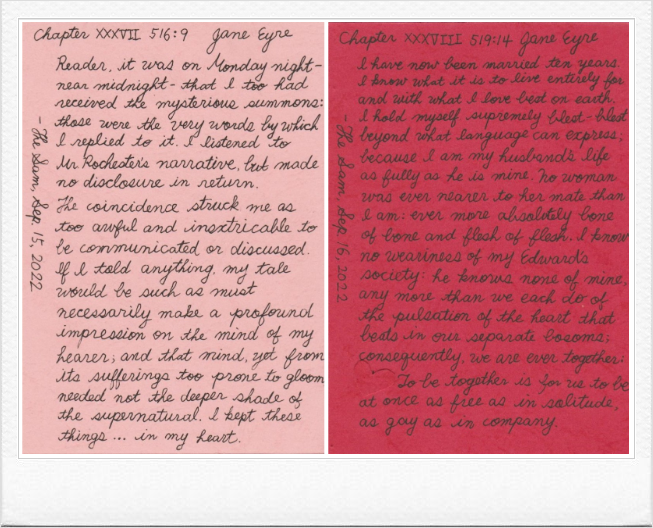 Chapter XXXVII 516:9 Jane Eyre
Reader, it was on Monday night-
near midnight - that I too had
received the mysterious summons:
those were the very words by which
I replied to it. I listened to
Mr. Rochester's narrative, but made
no disclosure in return.
The coincidence struck me as
too awful and inextricable to
be communicated or discussed.
If I told anything, my tale
would be such as must
necessarily make a profound
impression on the mind of my
hearer; and that mind, yet from
its sufferings too prone to gloom
needed not the deeper shade of
the supernatural. I kept these
things ... in my heart.
- The Sam, Sep. 15, 2022
Chapter XXXVIII 519:14 Jane Eyre
I have now been married ten years.
I know what it is to live entirely for
and with what I love best on earth.
I hold myself supremely blest - blest
beyond what language can express;
because I am my husband's life
as fully as he is mine. No woman
was ever nearer to her mate than
I am: ever more absolutely bone
of bone and flesh of flesh. I know
no weariness of my Edward's
society: he knows none of mine,
any more than we each do of
the pulsation of the heart that
beats in our separate bosoms;
consequently, we are ever together:
To be together is for us to be
at once as free as in solitude,
as gay as in company.
- The Sam, Sep. 16, 2022